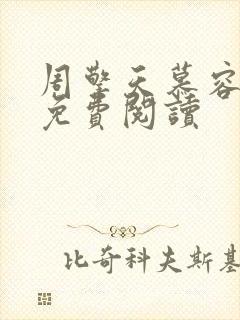 周擎天慕容
免費閱讀
比奇科夫斯基